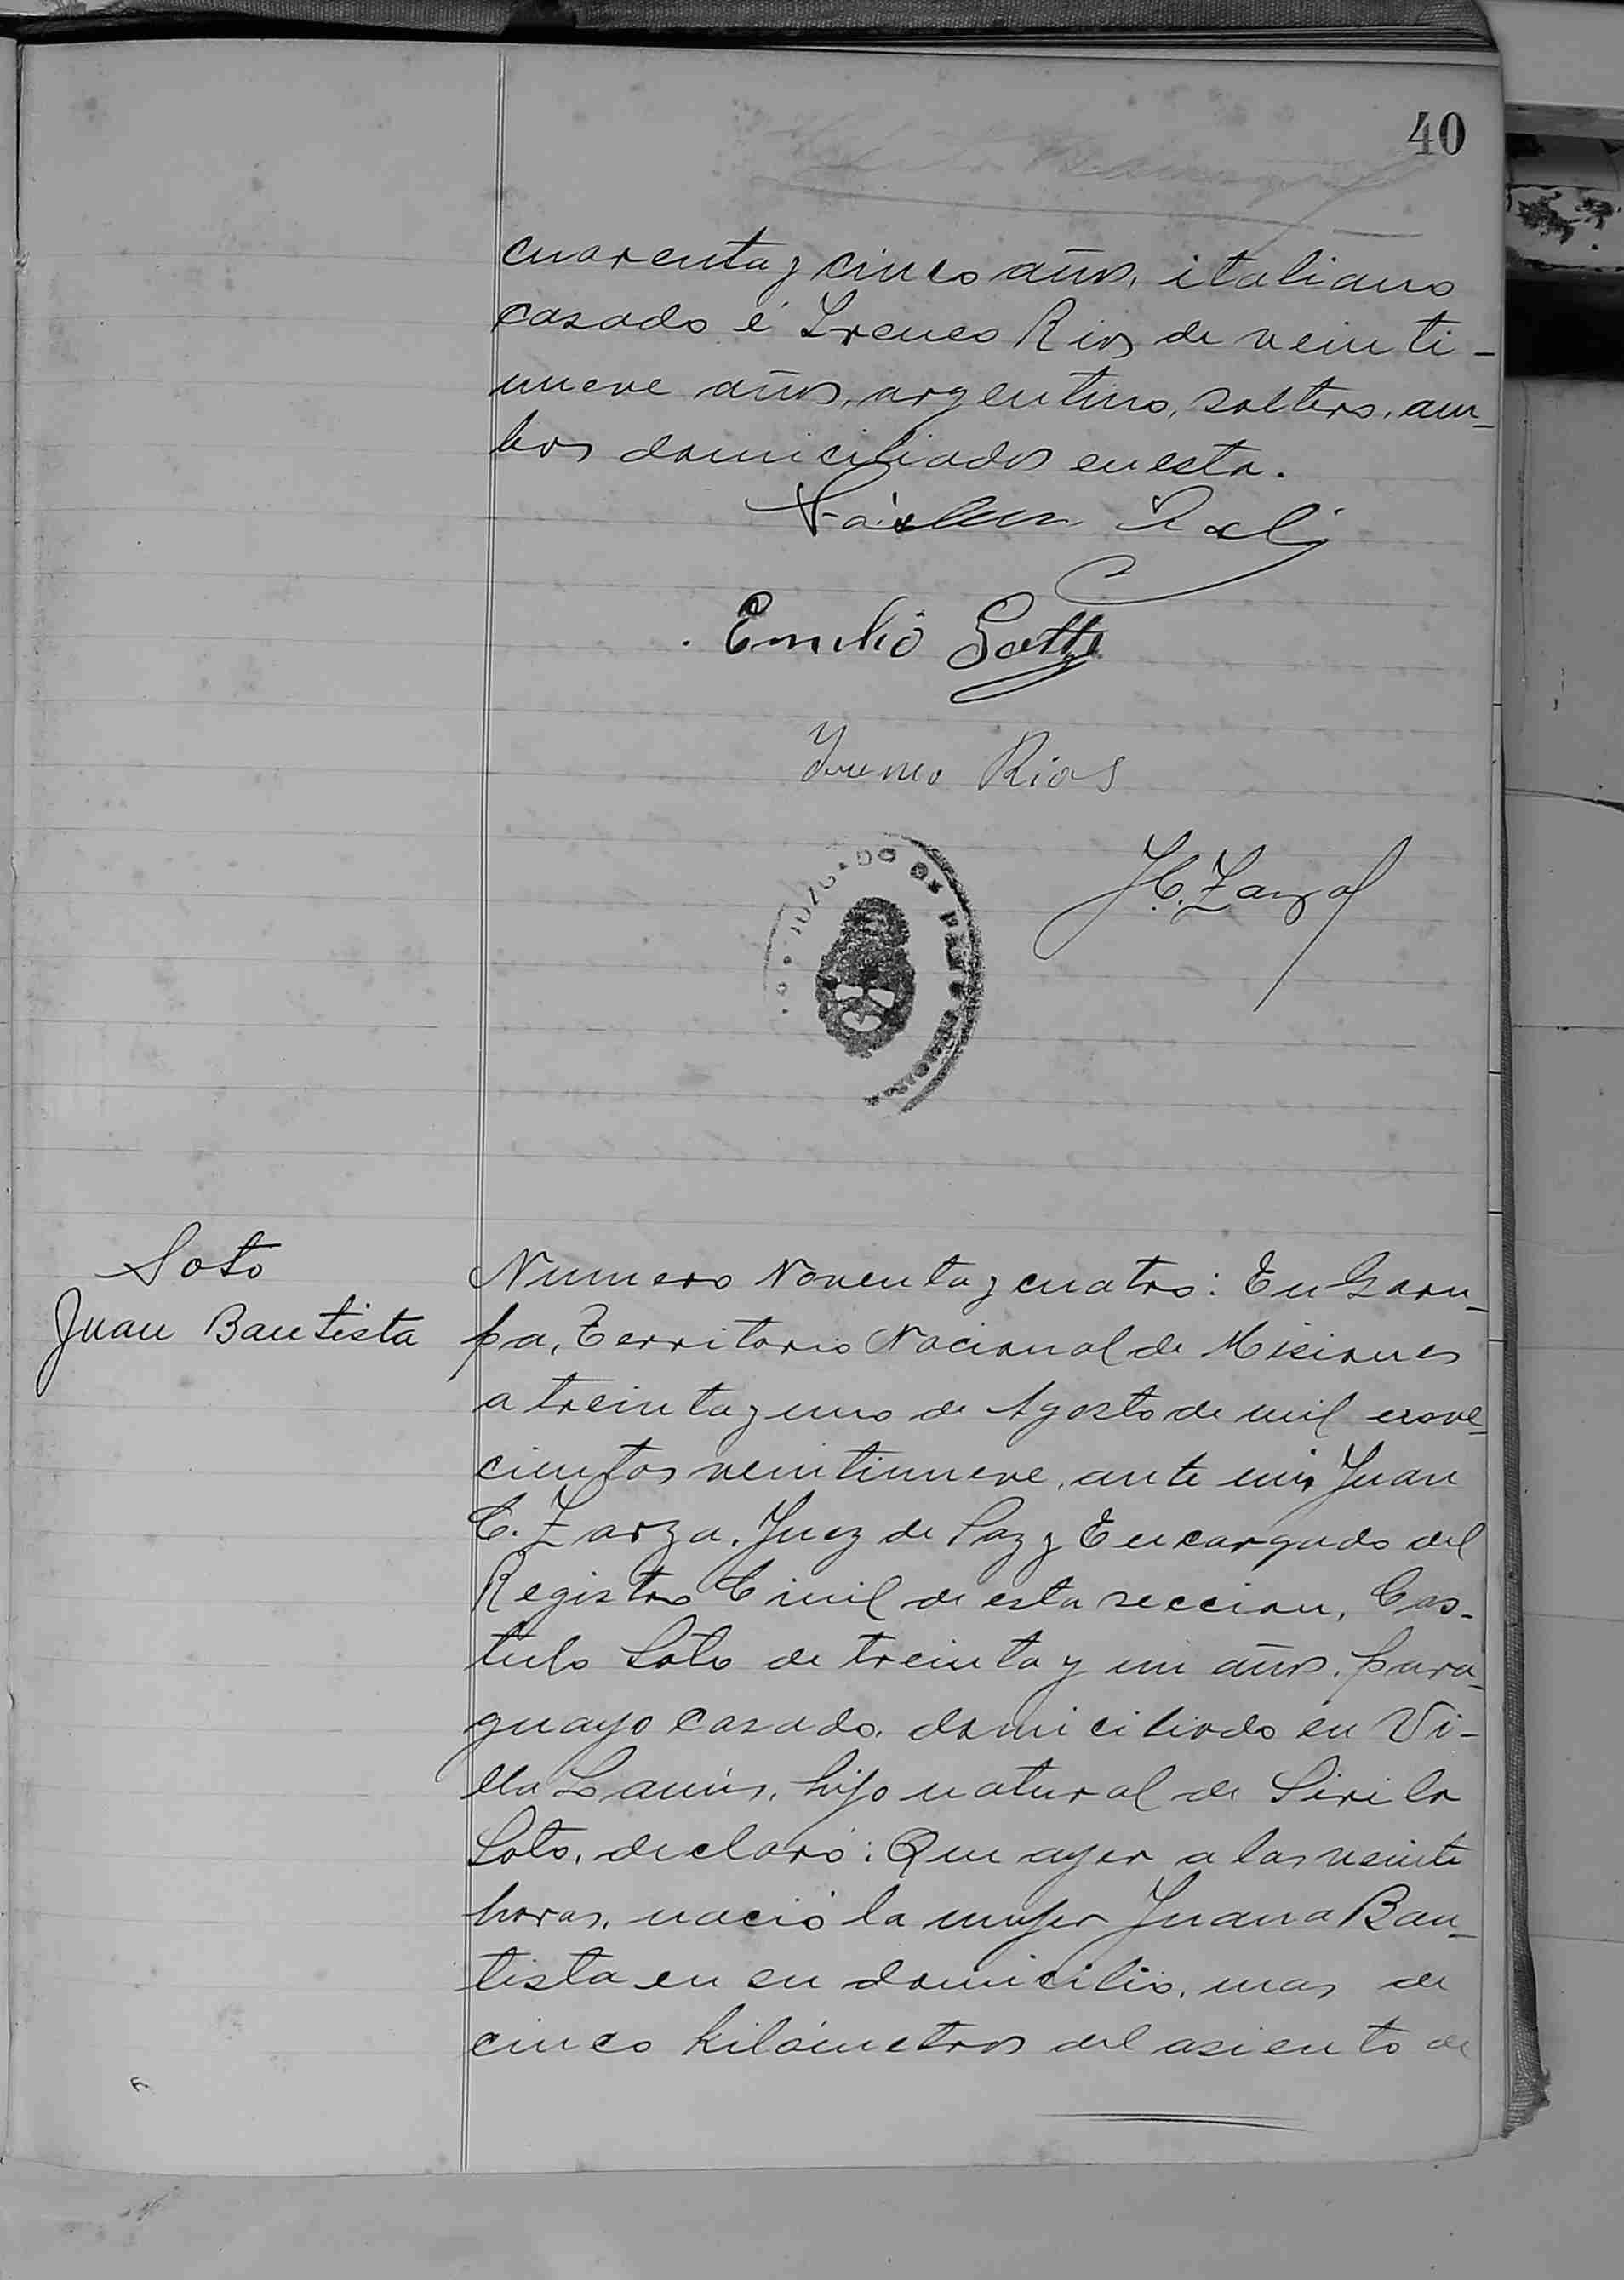 40
cuarenta y cinco años, italiano
casado é Ireneo Rios de veinti-
nueve años, argentino, soltero, am-
bos domiciliados en esta.
Emilio Gotti
Ireneo Rios
J.C. Zarza
JUZGADO DE PAZ
Soto
Juan Bautista
Numero Noventa y cuatro: En Garu-
pa, Territorio Nacional de Misiones
a treinta y uno de Agosto de mil nove-
cientos veintinueve, ante mi Juan
C. Zarza, Juez de Paz y Encargado del
Registro Civil de esta seccion, Cas-
tulo Soto de treinta y un años, para-
guayo casado, domiciliado en Vi-
lla Lanús, hijo natural de Sirila
Soto, declaró: Que ayer a las veinte
horas, nació la mujer Juana Bau-
tista en su domicilio, mas de
cinco kilómetros del asiento de